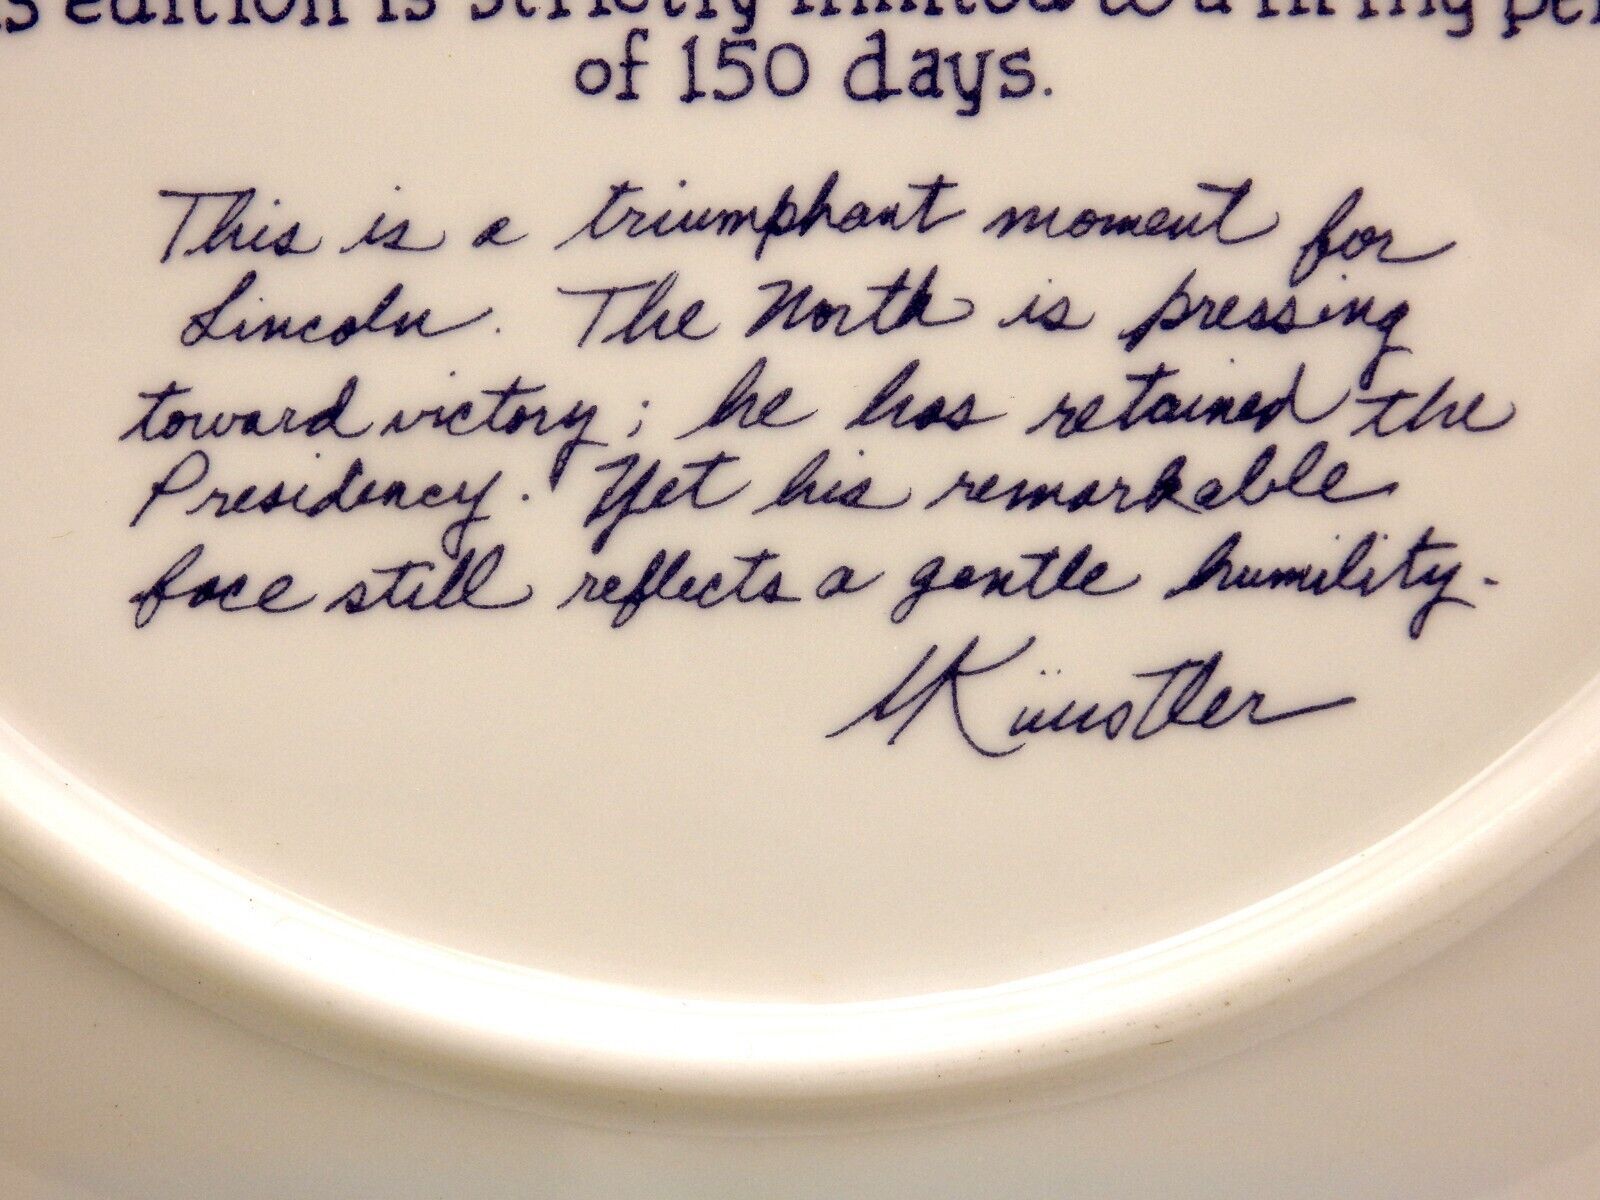 edition is strictly limited to a firing
of 150 days.
This is a triumphant moment for
Lincoln. The North is pressing
toward victory; he has retained the
Presidency. Yet his remarkable
face still reflects a gentle humility.
MKünstler